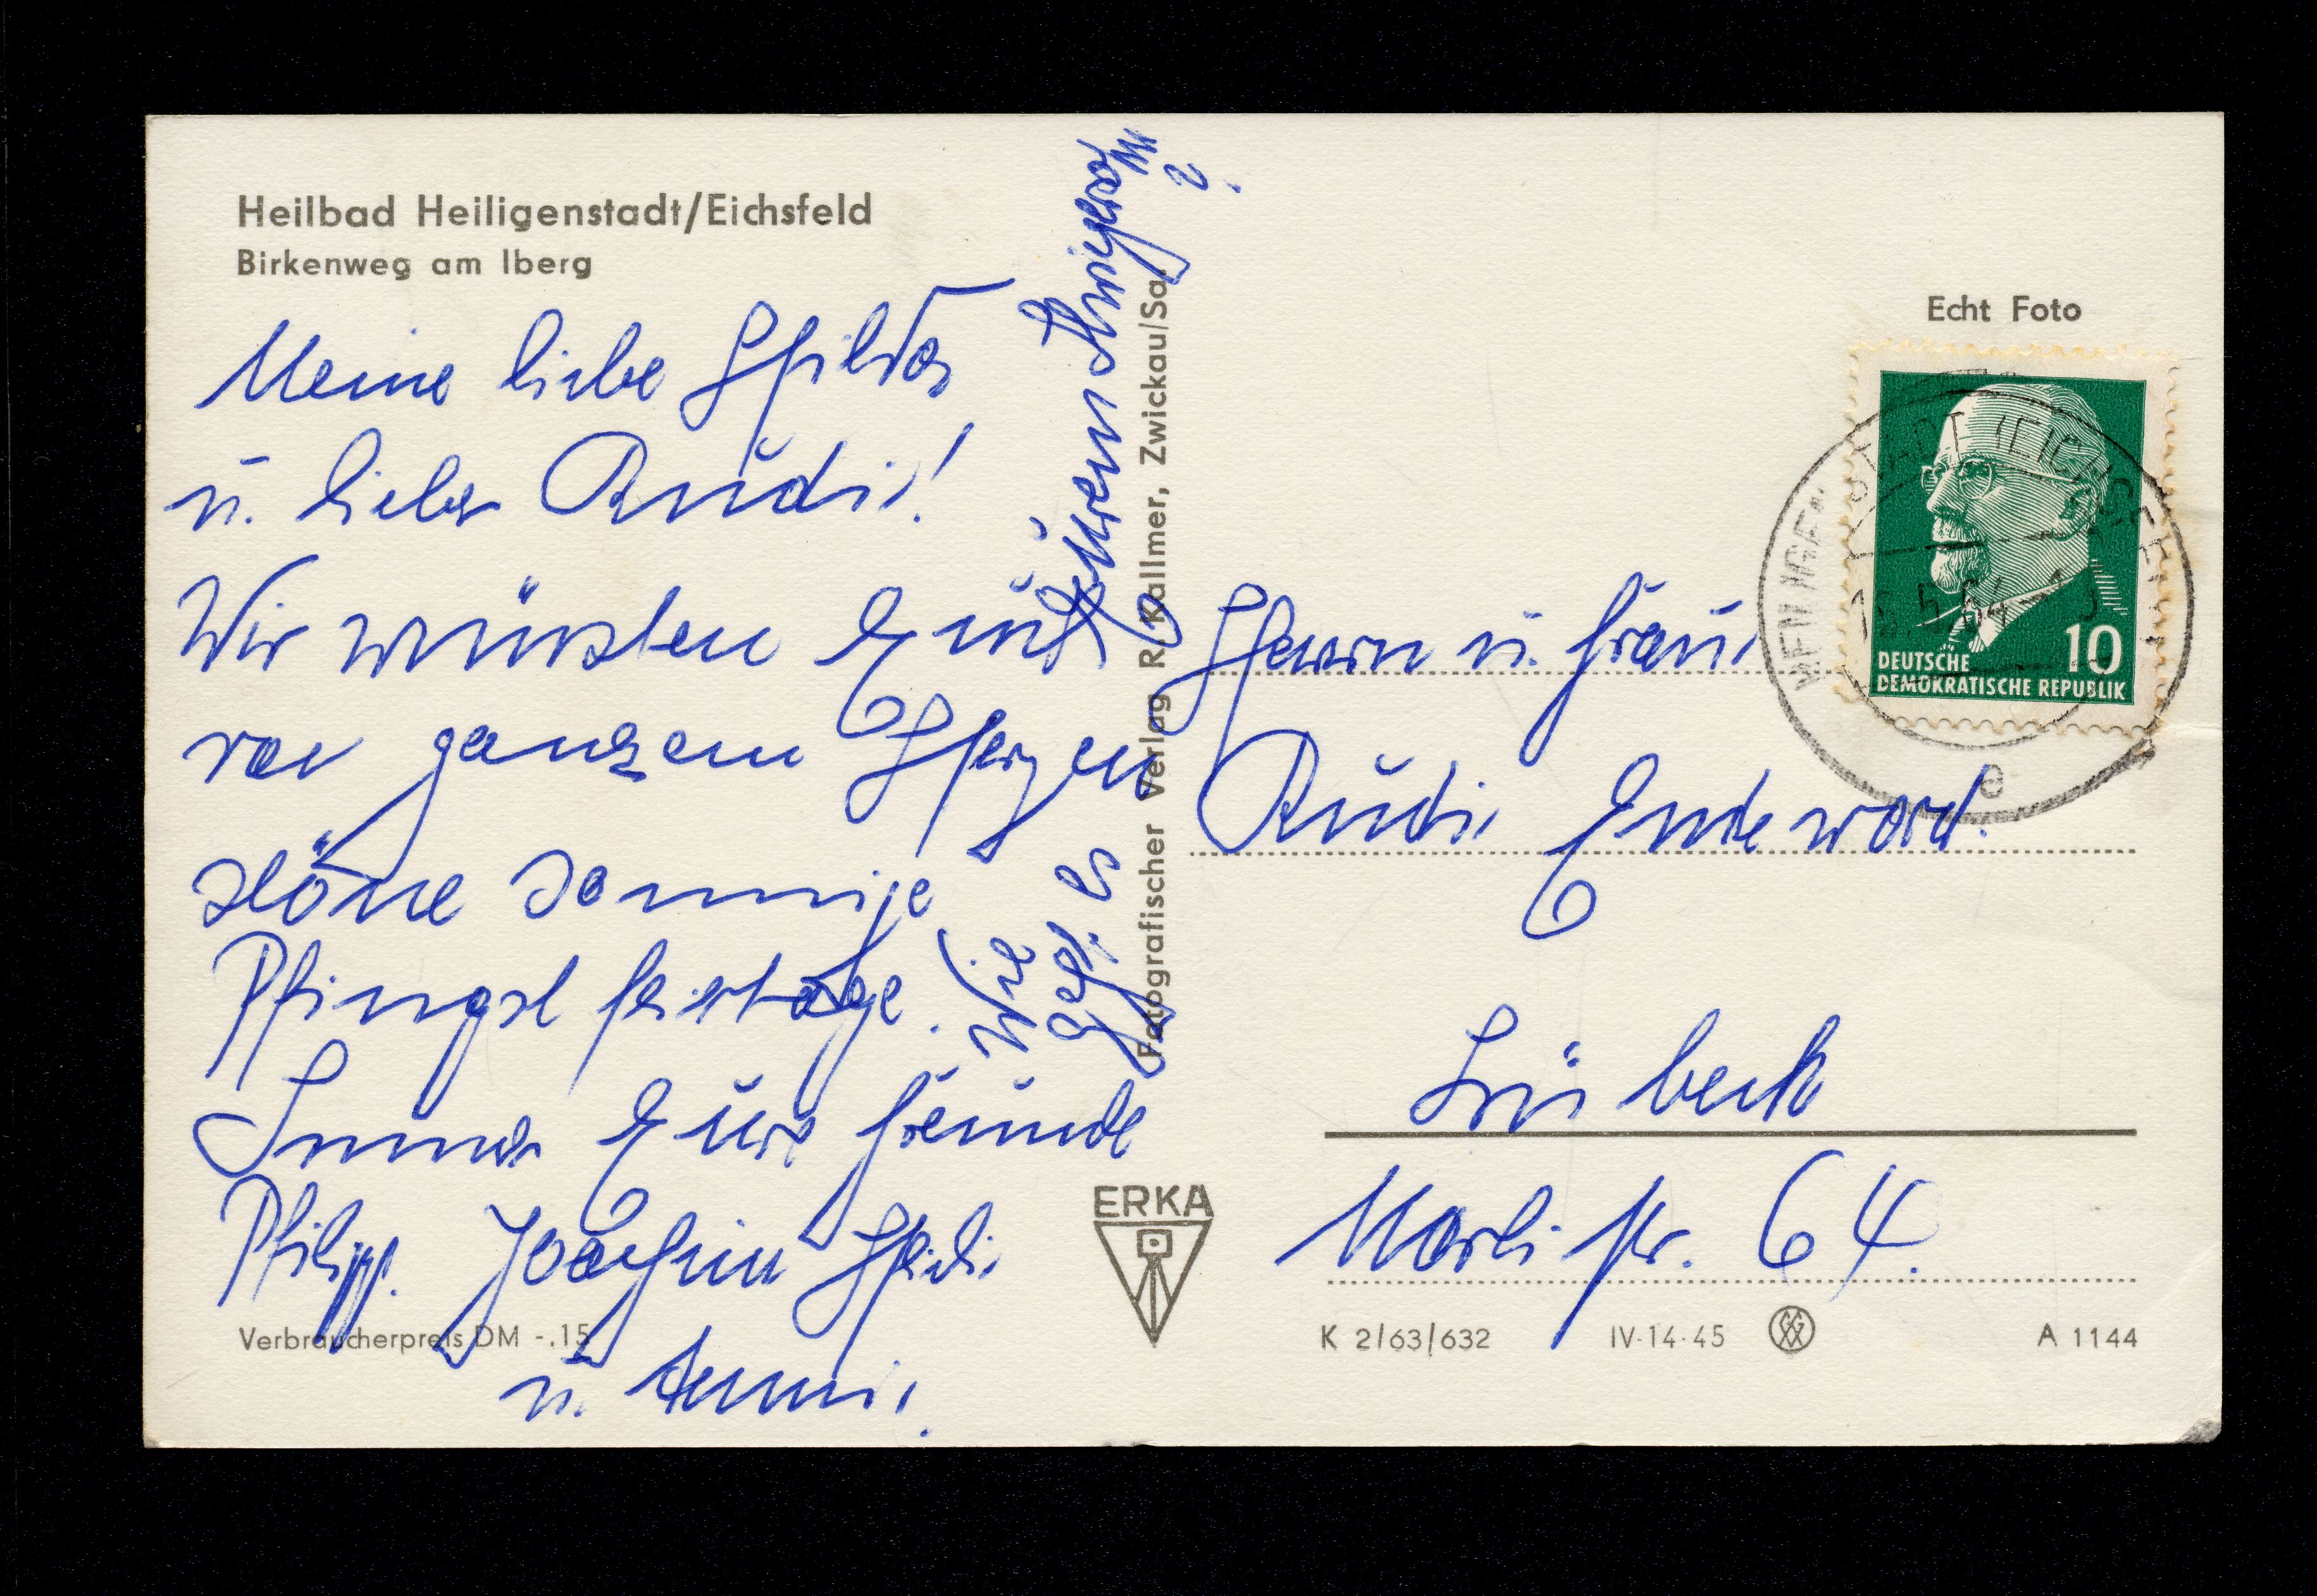 Heilbad Heiligenstadt/Eichsfeld
Birkenweg am Iberg
Meine liebe Hilda
u. lieber Rudi!
Wir wünschen Euch
von ganzem Herzen
schöne sonnige
Pfingstfeiertage.
Immer Eure Freunde
Philipp. Joachim Heidi
u. Anni.
Wie
geht es
Euren
?
Fotografischer Verlag R. Kallmer, Zwickau/Sa.
Verbraucherpreis DM -.15
ERKA
Echt Foto
DEUTSCHE
DEMOKRATISCHE REPUBLIK
10
Herrn u. Frau
Rudi Endeward.
Lübeck
Marlistr. 64.
K 2/63/632
IV-14-45
A 1144